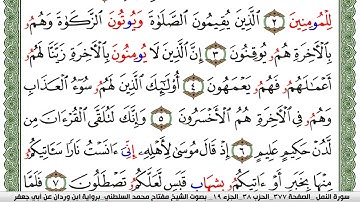 لِلْمُومِنِينَ ٢ ٱلَّذِينَ يُقِيمُونَ ٱلصَّلَوٰةَ وَيُوتُونَ ٱلزَّكَوٰةَ وَهُمُۥ
بِٱلْأَخِرَةِ هُمُۥ يُوقِنُونَ ٣ إِنَّ ٱلَّذِينَ لَا يُومِنُونَ بِٱلْأَخِرَةِ زَيَّنَّا لَهُمُۥ
أَعْمَٰلَهُمُۥ فَهُمُۥ يَعْمَهُونَ ٤ أُوْلَٰٓئِكَ ٱلَّذِينَ لَهُمُۥ سُوٓءُ ٱلْعَذَابِ
وَهُمُۥ فِي ٱلْأَخِرَةِ هُمُ ٱلْأَخْسَرُونَ ٥ وَإِنَّكَ لَتُلَقَّى ٱلْقُرْءَانَ مِن
لَّدُنْ حَكِيمٍ عَلِيمٍ ٦ إِذْ قَالَ مُوسَىٰ لِأَهْلِهِۦٓ إِنِّيَ ءَانَسْتُ نَارًا سَـَٔاتِيكُمُۥ
مِنْهَا بِخَبَرٍ أَوْ ءَاتِيكُمُۥ بِشِهَابِ قَبَسٍ لَّعَلَّكُمُۥ تَصْطَلُونَ ٧ فَلَمَّا
سورة النمل . الصفحة ٣٧٧ الحزب ٣٨ . الجزء ١٩ . بصوت الشيخ مفتاح محمد السلطني . برواية ابن وردان عن أبي جعفر